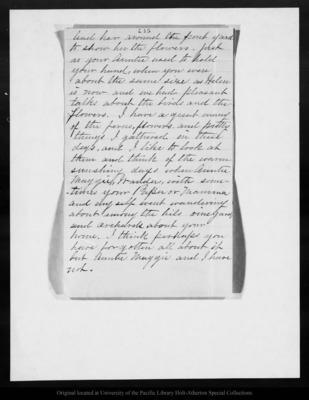 235
lead her around the front yard
to show her the flowers. Just
as your Auntie used to hold
your hand, when you were
about the same size as Helen
is now and we had pleasant
talks about the birds and the
flowers. I have a great many
of the ferns, flowers, and pretty
things I gathered in those
days, and I like to look at
them and think of the warm
sunshiny days when Auntie
Maggie, Wanda, with some-
-times your Papa or Mamma
and my self went wandering
about among the hills vineyard
and orchards about your
home. I think perhaps you
have forgotten all about it
but Auntie Maggie and I have
not.
Original located at University of the Pacific Library Holt-Atherton Special Collections.